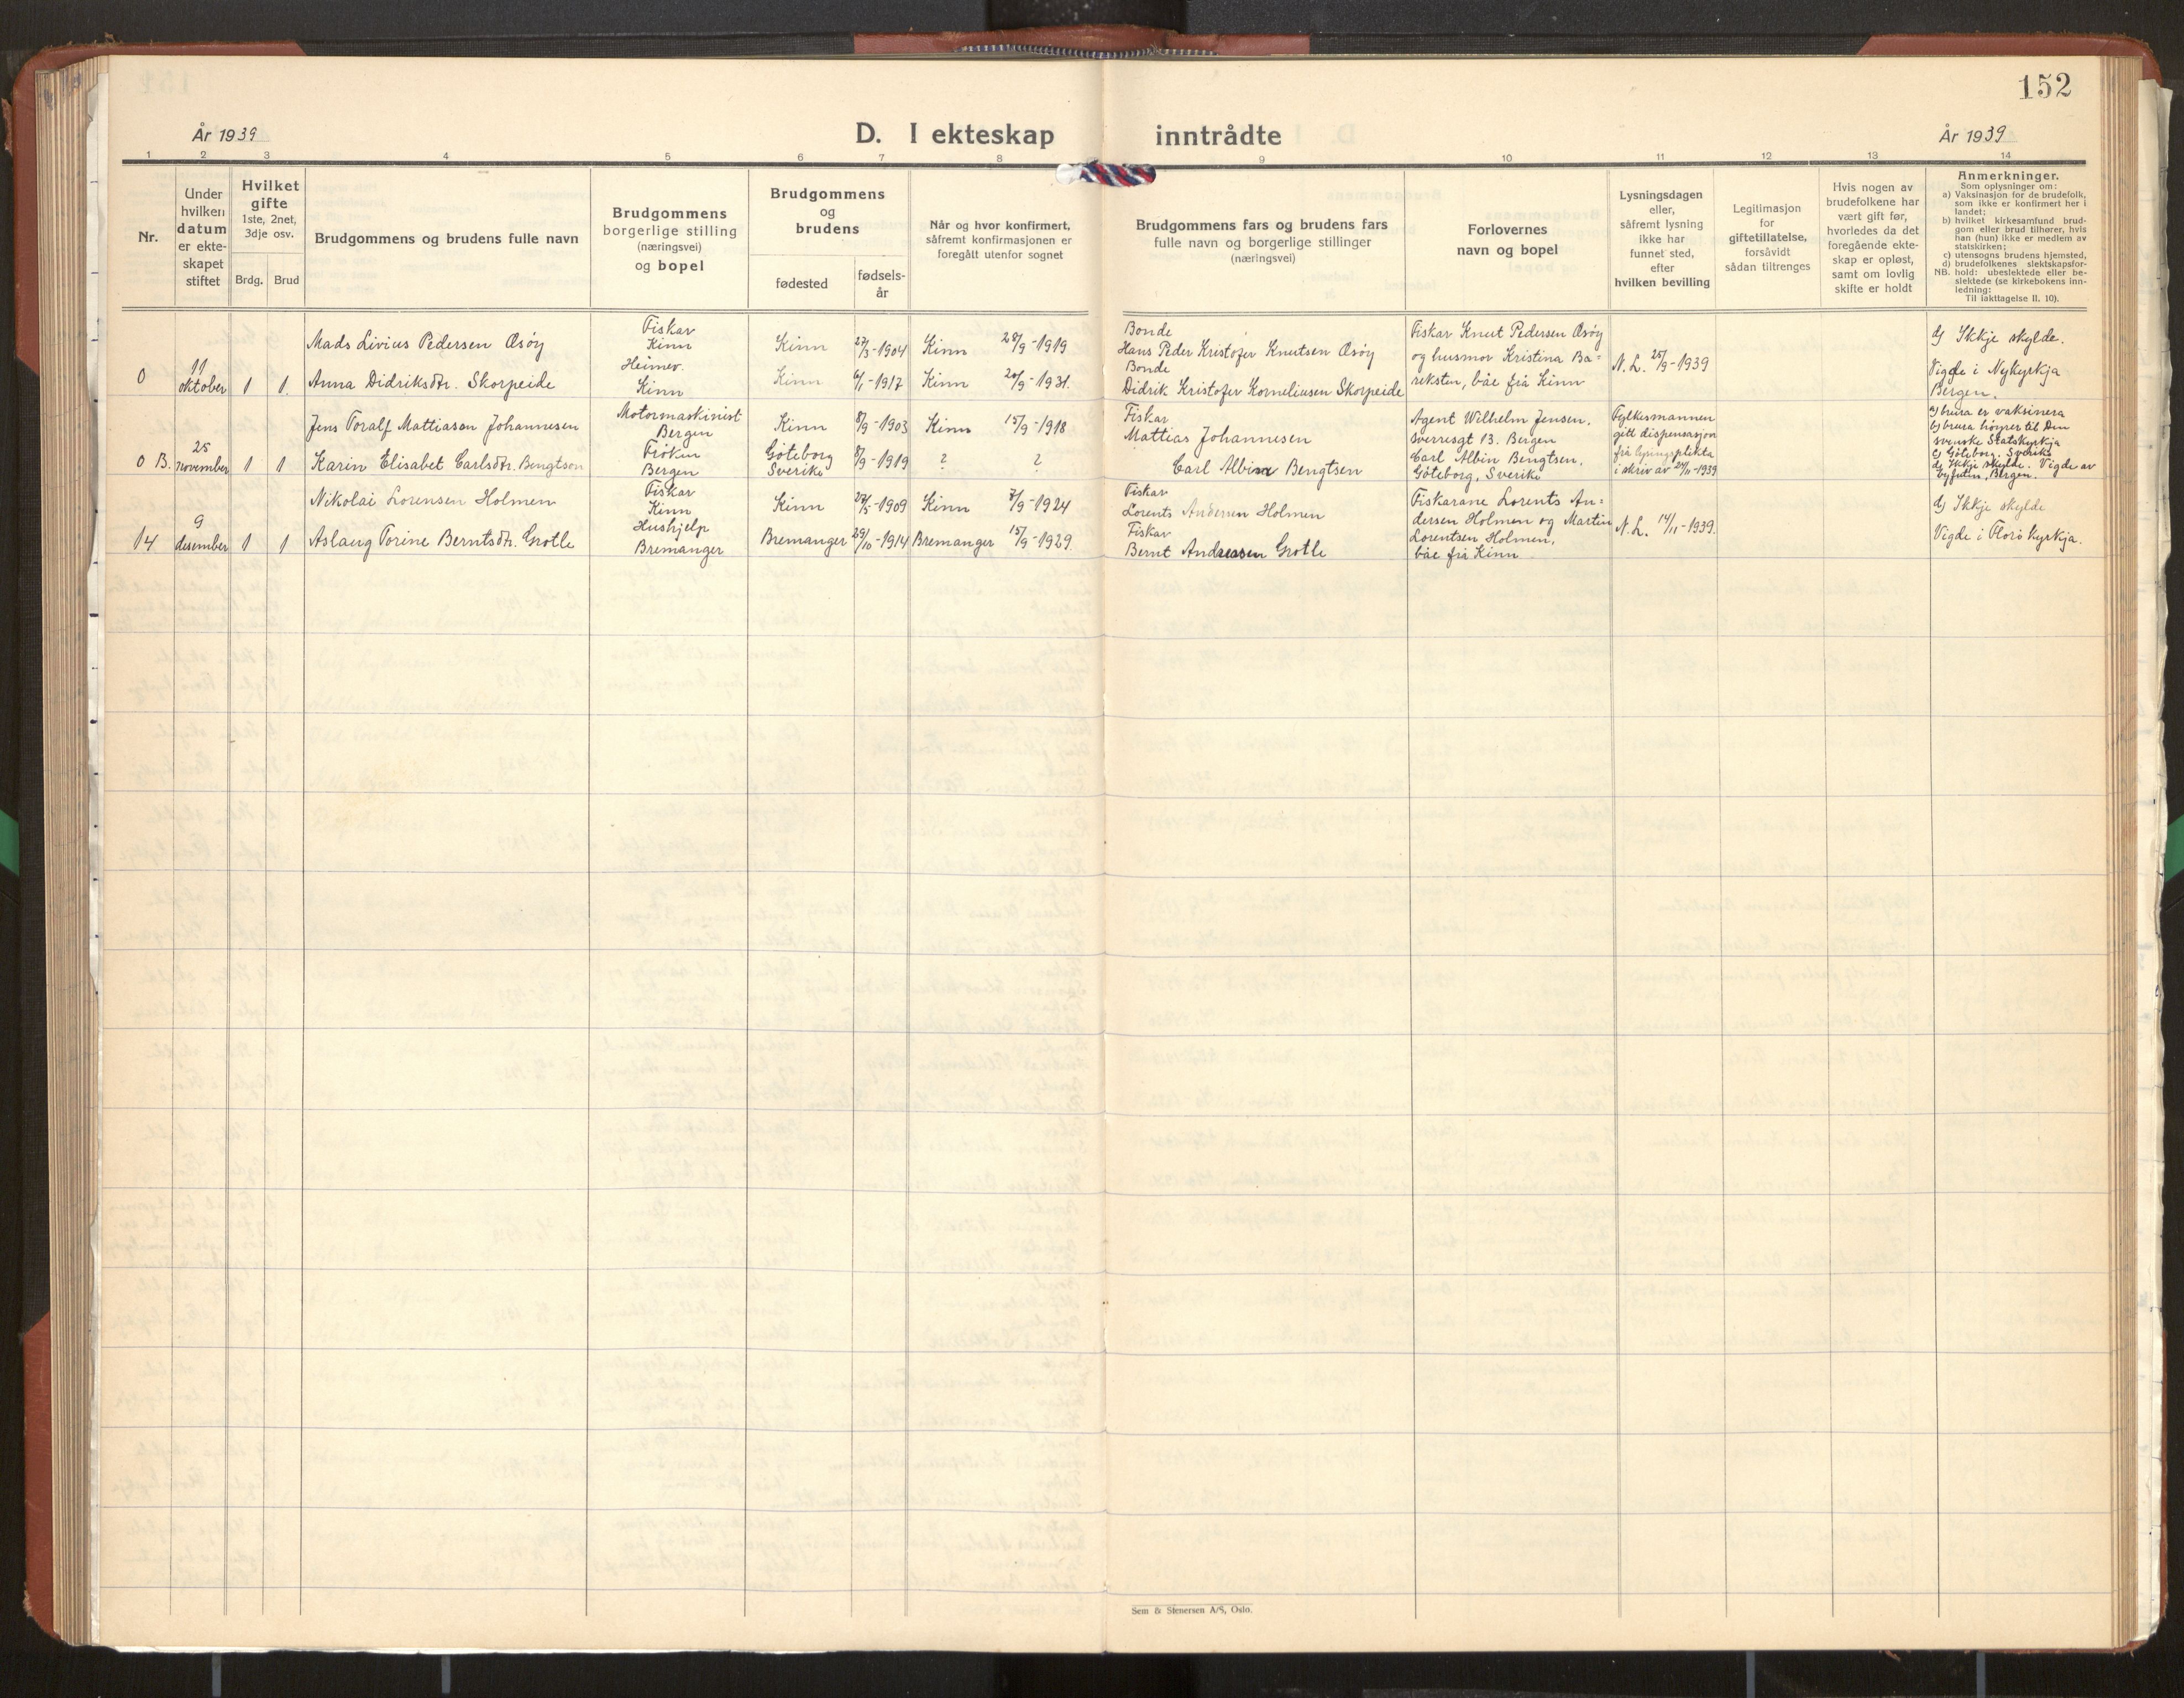 152
År 1939
D. I ekteskap inntrådte
År 1939
1 2 3 4 5 6 7 8 9 10 11 12 13 14
Nr.
Under
hvilken
datum
er ekte-
skapet
stiftet
Hvilket
gifte
1ste, 2net,
3dje osv.
Brdg. Brud
Brudgommens og brudens fulle navn
Brudgommens
borgerlige stilling
(næringsvei)
og bopel
Brudgommens
og
brudens
fødested
fødsels-
år
Når og hvor konfirmert,
såfremt konfirmasjonen er
foregått utenfor sognet
Brudgommens fars og brudens fars
fulle navn og borgerlige stillinger
(næringsvei)
Forlovernes
navn og bopel
Lysningsdagen
eller,
såfremt lysning
ikke har
funnet sted,
efter
hvilken bevilling
Legitimasjon
for
giftetillatelse,
forsåvidt
sådan tiltrenges
Hvis nogen av
brudefolkene har
vært gift før,
hvorledes da det
foregående ekte-
skap er opløst,
samt om lovlig
skifte er holdt
Anmerkninger.
Som oplysninger om:
a) Vaksinasjon for de brudefolk,
som ikke er konfirmert her i
landet;
b) hvilket kirkesamfund brud-
gom eller brud tilhører, hvis
han (hun) ikke er medlem av
statskirken;
c) utensogns brudens hjemsted,
d) brudefolkenes slektskapsfor-
NB. hold: ubeslektede eller be-
slektede (se kirkebokens inn-
ledning:
Til iakttagelse II. 10).
0
11
oktober
1 1.
Mads Livius Pedersen Øsøy
Fiskar
Kinn
Kinn
27/3-1904
Kinn 28/9-1919
Bonde
Hans Peder Kristofer Knutsen Øsøy
Anna Didriksdtr. Skorpeide
Heimev.
Kinn
Kinn
6/1-1917
Kinn 20/9-1931.
Bonde
Didrik Kristofer Korneliusen Skorpeide
Fiskar Knut Pedersen Øsøy
og husmor Kristina Ba-
reksten, båe frå Kinn
N. L. 25/9-1939
d) Ikkje skylde.
Vigde i Nykyrkja
Bergen.
0 B.
25
november
1 1
Jens Toralf Mattiasen Johannesen
Motormaskinist
Bergen
Kinn
8/9-1903
Kinn 15/9-1918
Fiskar
Mattias Johannesen
Karin Elisabet Carlsdtr. Bengtson
Frøken
Bergen
Göteborg
Sverike
8/9-1919
? ?
Carl Albin Bengtsen
Agent Wilhelm Jensen.
Sverresgt 13. Bergen
Carl Albin Bengtsen,
Göteborg, Sverike
Fylkesmannen
gitt dispensasjon
frå lysingsplikta
i skriv av 24/11-1939
a) brura er vaksinera
b) brura høyrer til Den
svenske Statskyrkja
c) Göteborg. Sverike
d) Ikkje skylde. Vigde av
byfuten, Bergen.
14
9
desember
1 1
Nikolai Lorensen Holmen
Fiskar
Kinn
Kinn
27/5-1909
Kinn 7/9-1924
Fiskar
Lorents Andersen Holmen
Aslaug Torine Berntsdtr. Grotle
Hushjelp
Bremanger
Bremanger
29/10-1914
Bremanger 15/9-1929
Fiskar
Bernt Andreassen Grotle
Fiskarane Lorents An-
dersen Holmen og Martin
Lorentsen Holmen,
båe frå Kinn
N. L. 14/11-1939.
d) Ikkje skylde
Vigde i Florø Kyrkja.
Sem & Stenersen A/S, Oslo.